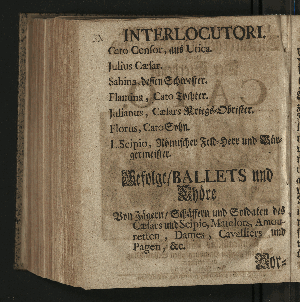 INTERLOCUTORI.
Cato Censor, aus Utica.
Julius Cæsar.
Sabina, dessen Schwester.
Flaminia, Cato Tochter.
Julianus, Cæsars Kriegs-Obrister.
Florus, Cato Sohn.
L. Scipio, Römischer Feld-Herr und Bür-
germeister.
Gefolge/BALLETS und
Chöre
Von Jägern/ Schäffern und Soldaten des
Cæsars und Scipio, Matelots, Amou-
retten, Dames, Cavalliers und
Pagen, &c.
Vor-